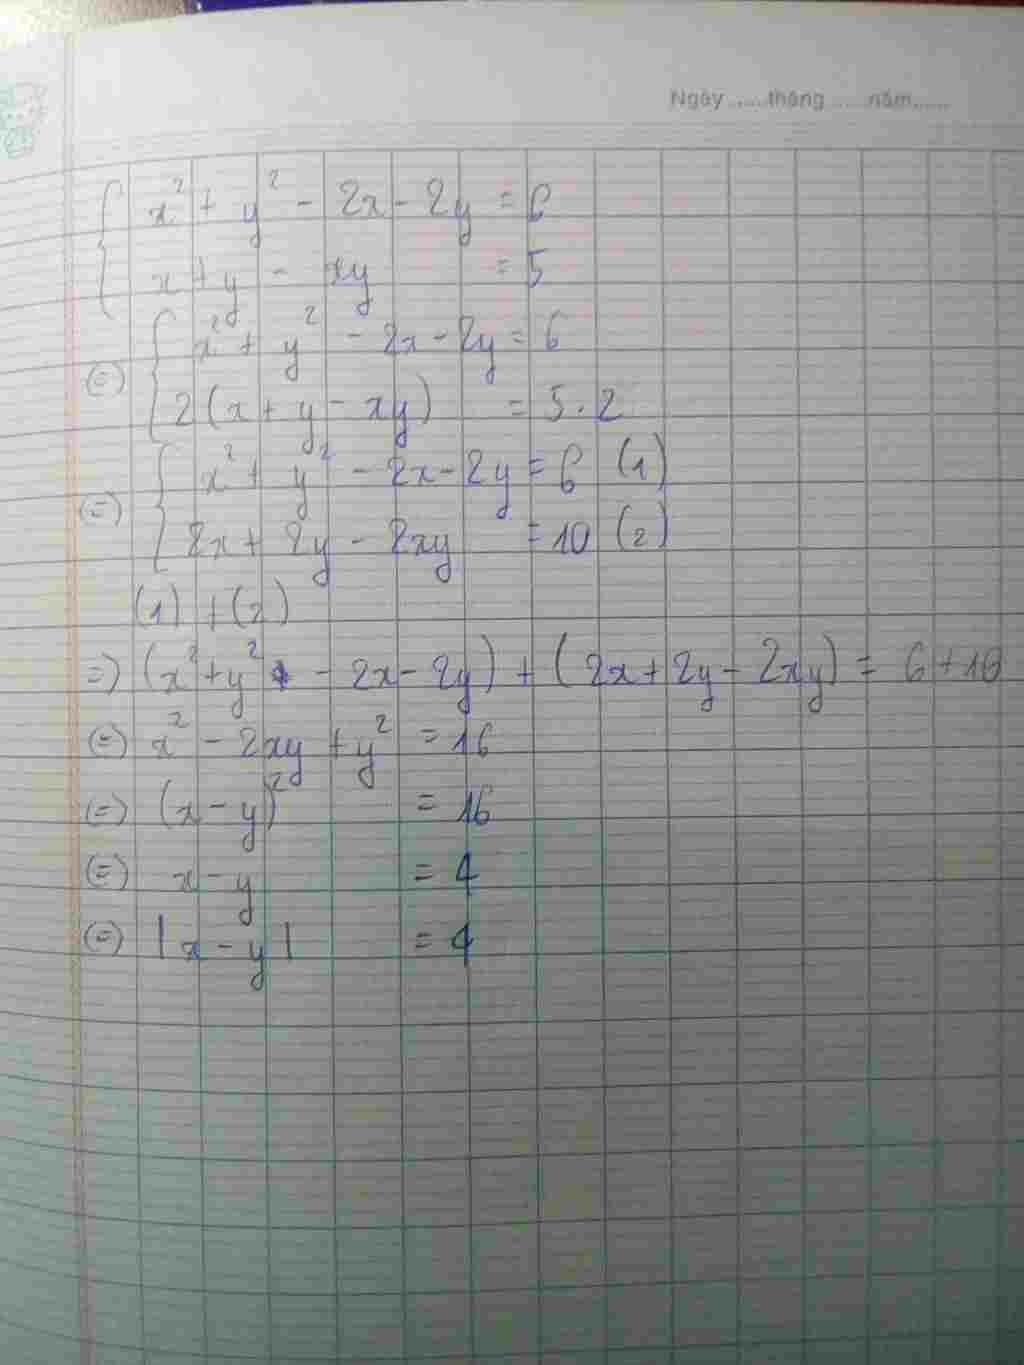 Ngày ......tháng ......năm......
{ x² + y² - 2x - 2y = 6
x + y - xy = 5
(=) { x² + y² - 2x - 2y = 6
2(x + y - xy) = 5.2
(=) { x² + y² - 2x - 2y = 6 (1)
2x + 2y - 2xy = 10 (2)
(1) + (2)
=) (x² + y² - 2x - 2y) + (2x + 2y - 2xy) = 6 + 10
(=) x² - 2xy + y² = 16
(=) (x - y)² = 16
(=) x - y = 4
(=) |x - y| = 4